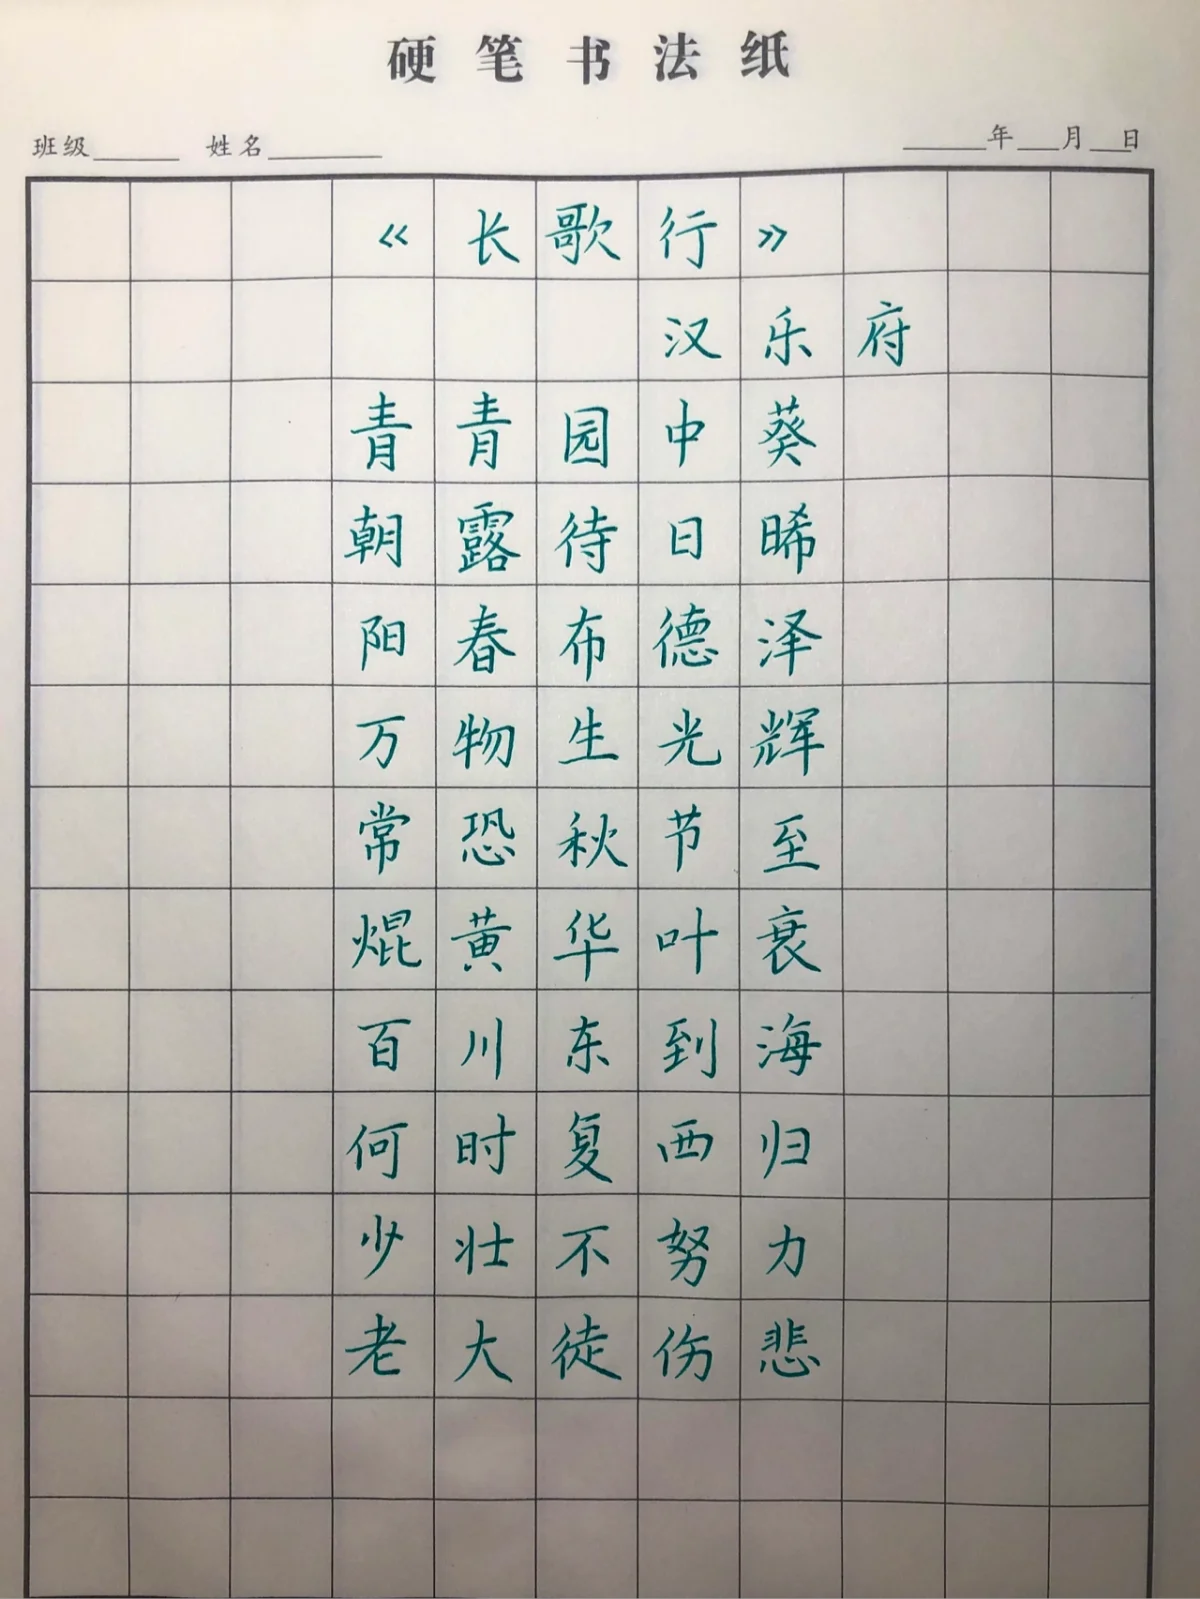 硬笔书法纸
班级______ 姓名________ ______年___月___日
《长歌行》
汉乐府
青青园中葵
朝露待日晞
阳春布德泽
万物生光辉
常恐秋节至
焜黄华叶衰
百川东到海
何时复西归
少壮不努力
老大徒伤悲